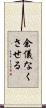 余儀なくさせる